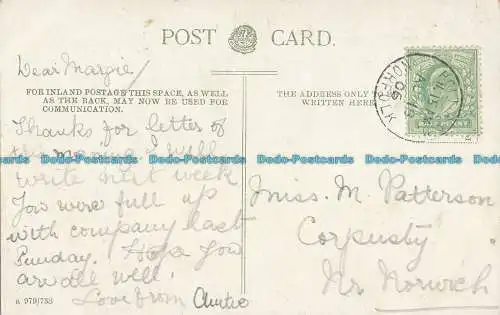 POST CARD.
Dear Margie/
FOR INLAND POSTAGE THIS SPACE, AS WELL
AS THE BACK, MAY NOW BE USED FOR
COMMUNICATION.
THE ADDRESS ONLY
WRITTEN HERE
Thanks for letter of
this morning I will
write next week
You were full up
with company last
Sunday. Hope you
are all well.
Love from Auntie
Miss. M. Patterson
Corpusty
Nr Norwich
a 979/753
NORFOLK
Postcards Postcards Postcards Postcards Postcards Postcards Postcards